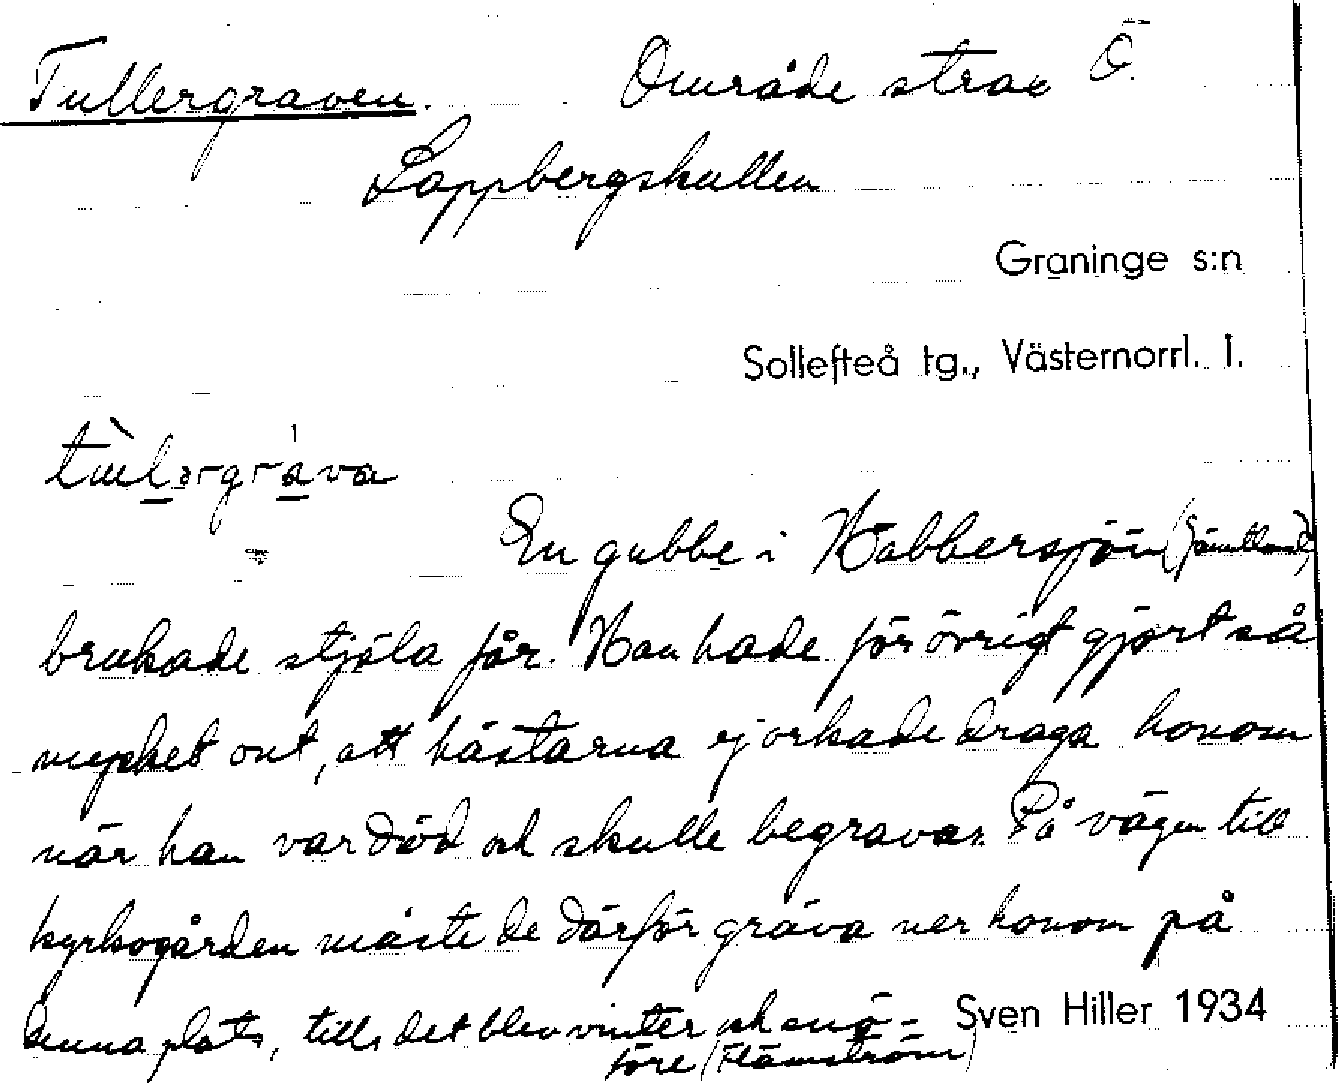 Tullergraven. Område strax Ö.
Lappbergskullen
Graninge s:n
Sollefteå tg., Västernorrl. l.
En gubbe i Häbbersjön (Jämtland)
brukade stjäla får. Han hade för övrigt gjort så
mycket ont, att hästarna ej orkade draga honom
när han var död och skulle begravas. På vägen till
kyrkogården måste de därför gräva ner honom på
denna plats, tills det blev vinter och snö-
före (Flämström)
Sven Hiller 1934